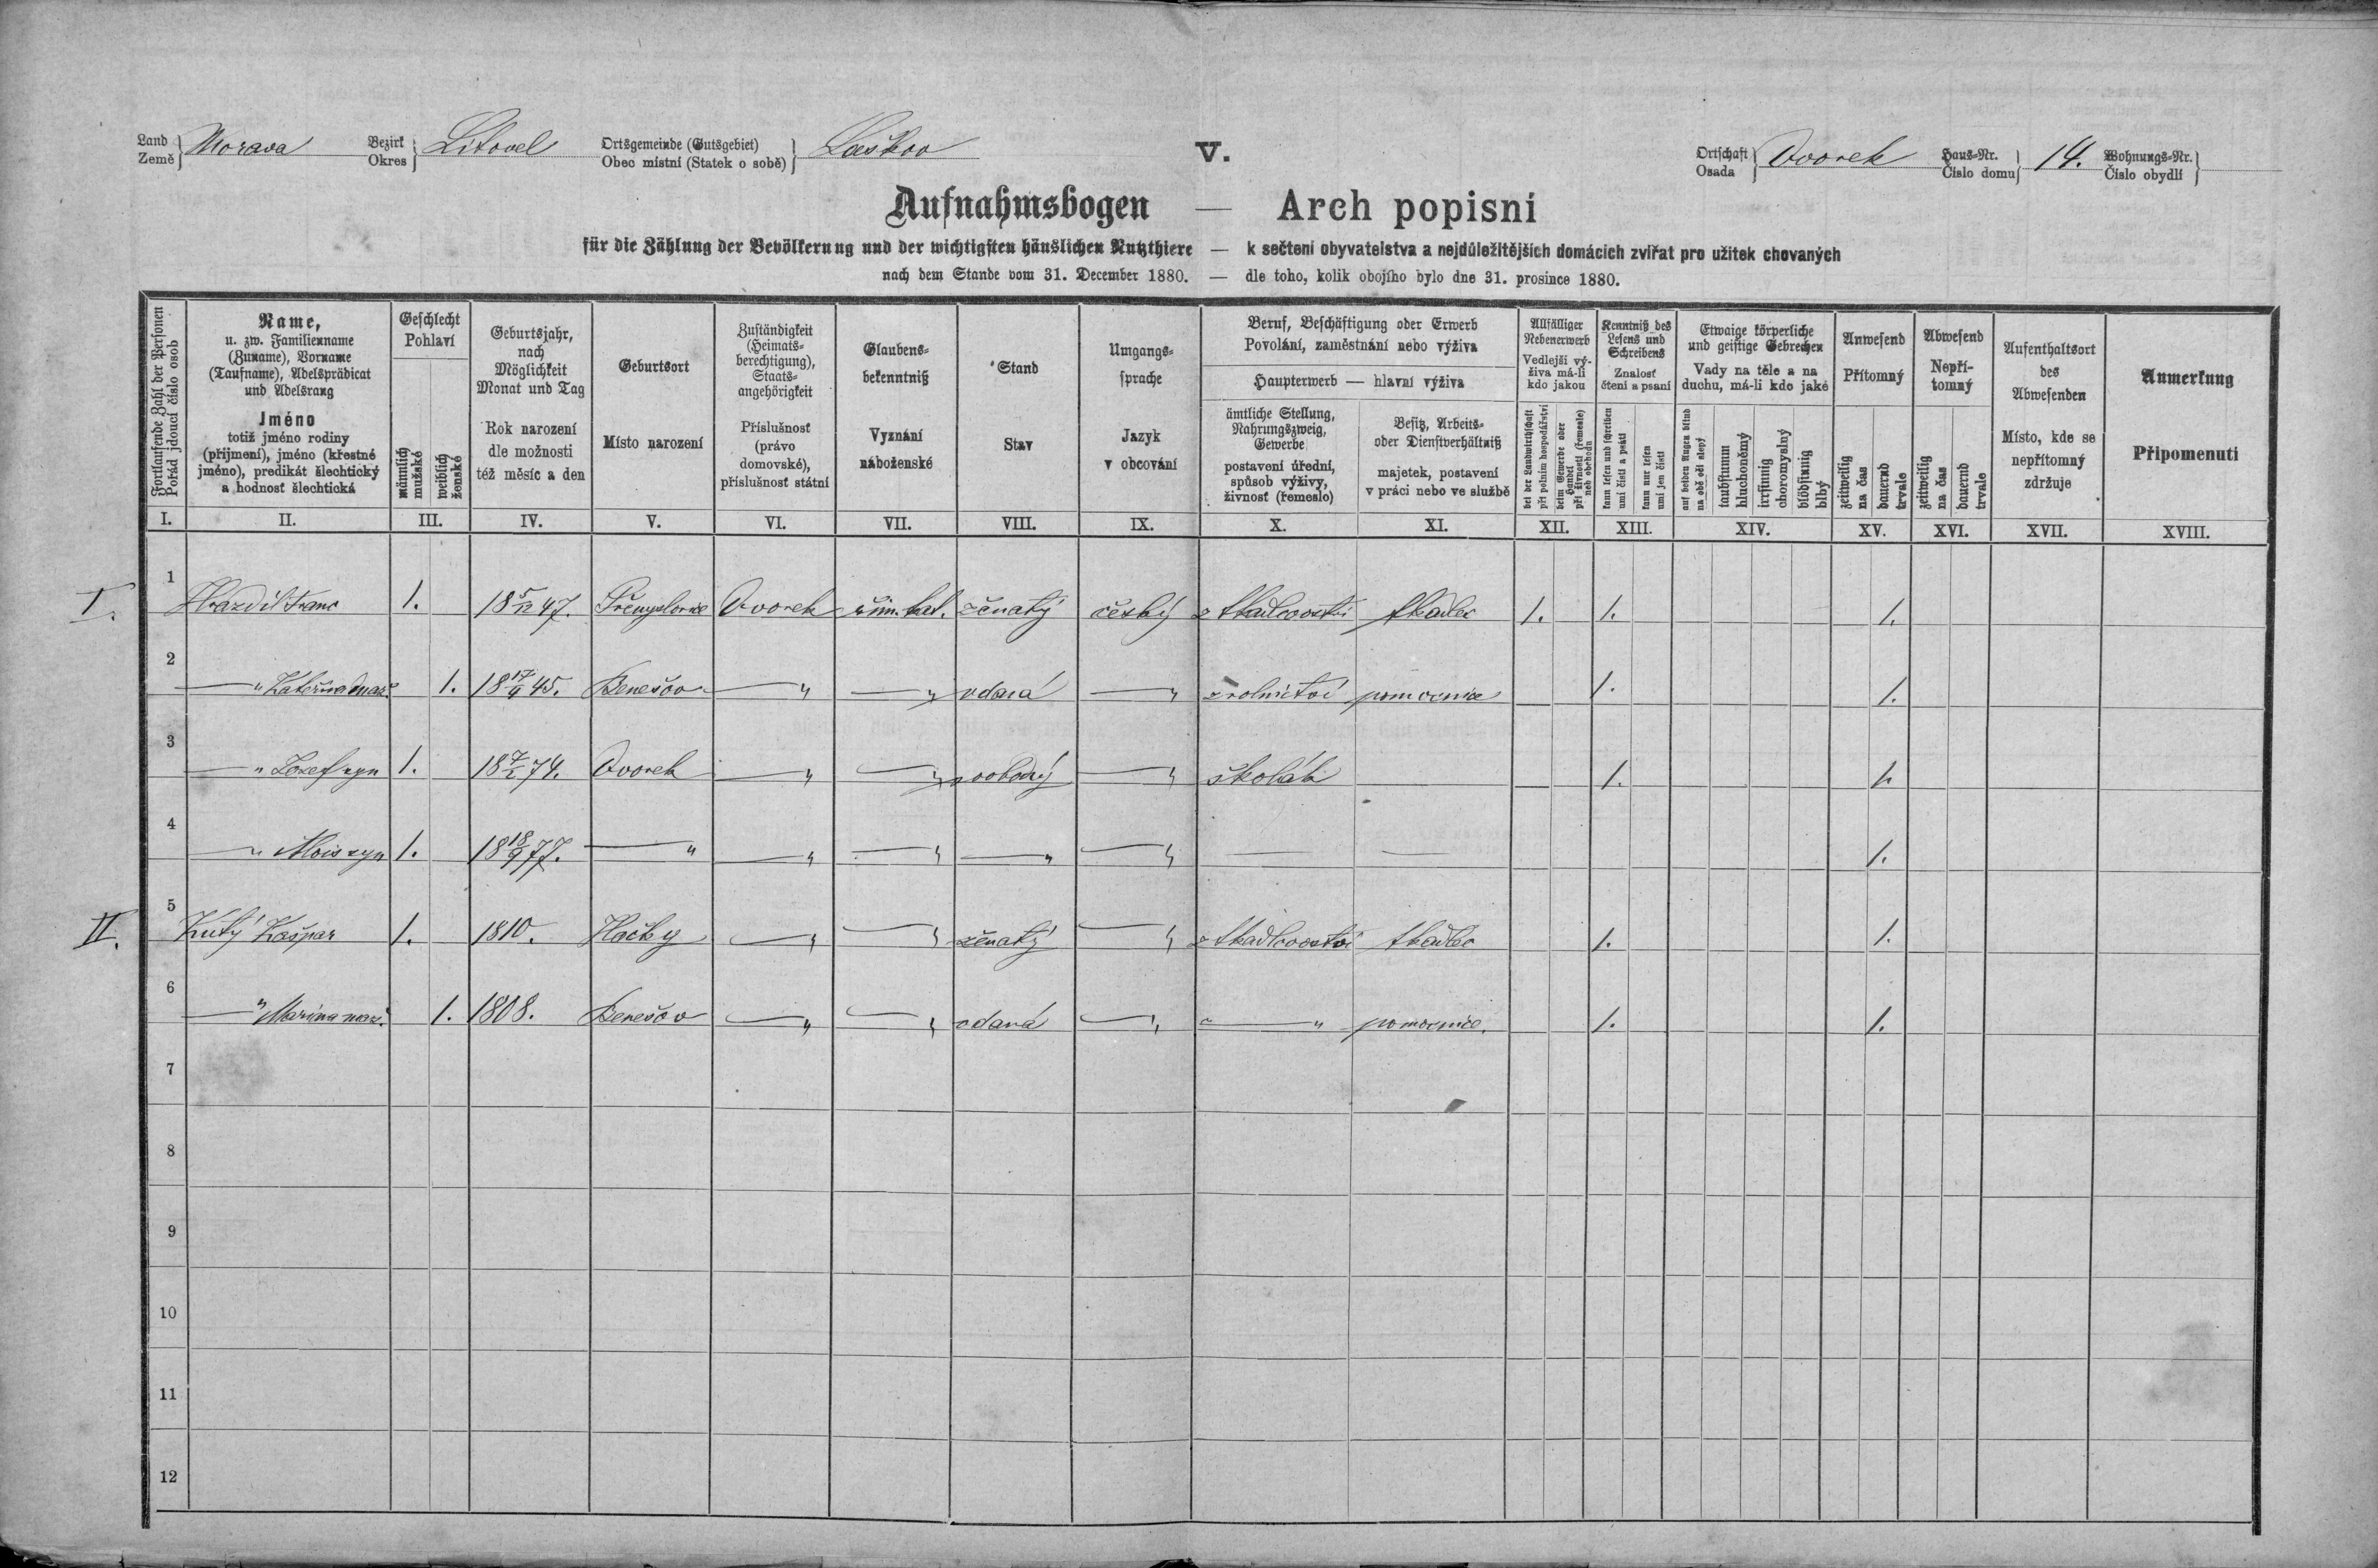 Land Země } Morava Bezirk Okres } Litovel Ortsgemeinde (Gutsgebiet) Obec místní (Statek o sobě) } Laškov V. Ortschaft Osada } Dvorek Haus-Nr. Číslo domu } 14. Wohnungs-Nr. Číslo obydlí }
Aufnahmsbogen — Arch popisní
für die Zählung der Bevölkerung und der wichtigsten häuslichen Nutzthiere — k sečtení obyvatelstva a nejdůležitějších domácích zvířat pro užitek chovaných
nach dem Stande vom 31. December 1880. — dle toho, kolik obojího bylo dne 31. prosince 1880.
Fortlaufende Zahl der Personen
Pořád jdoucí číslo osob
I.
Name,
u. zw. Familienname
(Zuname), Vorname
(Taufname), Adelsprädicat
und Adelsrang
Jméno
totiž jméno rodiny
(příjmení), jméno (křestné
jméno), predikát šlechtický
a hodnosť šlechtická
II.
Geschlecht
Pohlaví
männlich
mužské
weiblich
ženské
III.
Geburtsjahr,
nach
Möglichkeit
Monat und Tag
Rok narození
dle možnosti
též měsíc a den
IV.
Geburtsort
Místo narození
V.
Zuständigkeit
(Heimats-
berechtigung),
Staats-
angehörigkeit
Příslušnosť
(právo
domovské),
příslušnosť státní
VI.
Glaubens-
bekenntniß
Vyznání
náboženské
VII.
Stand
Stav
VIII.
Umgangs-
sprache
Jazyk
v obcování
IX.
Beruf, Beschäftigung oder Erwerb
Povolání, zaměstnání nebo výživa
Haupterwerb — hlavní výživa
ämtliche Stellung,
Nahrungszweig,
Gewerbe
postavení úřední,
spůsob výživy,
živnosť (řemeslo)
X.
Besitz, Arbeits-
oder Dienstverhältniß
majetek, postavení
v práci nebo ve službě
XI.
Allfälliger
Nebenerwerb
Vedlejší vý-
živa má-li
kdo jakou
bei der Landwirthschaft
při polním hospodářství
beim Gewerbe oder
Handel
při živnosti (řemesle)
neb obchodu
XII.
Kenntniß des
Lesens und
Schreibens
Znalosť
čtení a psaní
kann lesen und schreiben
umí čísti a psáti
kann nur lesen
umí jen čísti
XIII.
Etwaige körperliche
und geistige Gebrechen
Vady na těle a na
duchu, má-li kdo jaké
auf beiden Augen blind
na obě oči slepý
taubstumm
hluchoněmý
irrsinnig
choromyslný
blödsinnig
blbý
XIV.
Anwesend
Přítomný
zeitweilig
na čas
dauernd
trvale
XV.
Abwesend
Nepří-
tomný
zeitweilig
na čas
dauernd
trvale
XVI.
Aufenthaltsort
des
Abwesenden
Místo, kde se
nepřítomný
zdržuje
XVII.
Anmerkung
Připomenutí
XVIII.
I. 1 Hrazdil Franc 1. 18 5/12 47. Přemyslovice Dvorek řím. kat. ženatý český z tkadlcovství tkadlec 1. 1. 1.
2 — " Kateřina 1. 18 17/9 45. Benešov — " — " vdaná — " z rolnictví pomocnice 1. 1.
3 — " Josef syn 1. 18 7/2 74. Dvorek — " — " svobodný — " školák — 1. 1.
4 — " Alois syn 1. 18 18/9 77. — " — " — " — " — " — — 1.
II. 5 Kutý Kašpar 1. 1810. Hačky — " — " ženatý — " z tkadlcovství tkadlec 1. 1.
6 — " Marina manž. 1. 1808. Benešov — " — " vdaná — " " — " pomocnice. 1. 1.
7
8
9
10
11
12